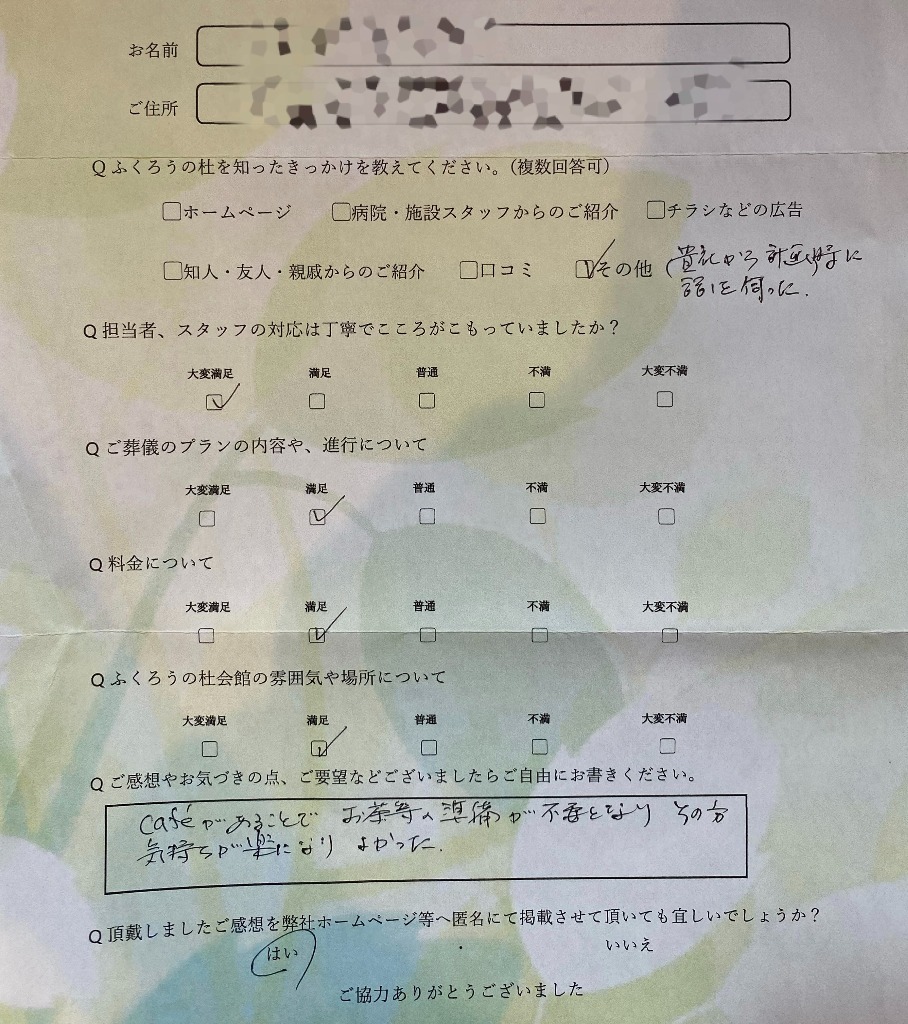 お名前
ご住所
Q ふくろうの杜を知ったきっかけを教えてください。(複数回答可)
□ホームページ □病院・施設スタッフからのご紹介 □チラシなどの広告
□知人・友人・親戚からのご紹介 □口コミ ☑その他 (貴社から計画時に
話を伺った.
Q 担当者、スタッフの対応は丁寧でこころがこもっていましたか？
大変満足 満足 普通 不満 大変不満
☑ □ □ □ □
Q ご葬儀のプランの内容や、進行について
大変満足 満足 普通 不満 大変不満
□ ☑ □ □ □
Q 料金について
大変満足 満足 普通 不満 大変不満
□ ☑ □ □ □
Q ふくろうの杜会館の雰囲気や場所について
大変満足 満足 普通 不満 大変不満
□ ☑ □ □ □
Q ご感想やお気づきの点、ご要望などございましたらご自由にお書きください。
caféがあることで お茶等の準備が不要となり その分
気持ちが楽になり よかった.
Q 頂戴しましたご感想を弊社ホームページ等へ匿名にて掲載させて頂いても宜しいでしょうか？
はい ・ いいえ
ご協力ありがとうございました